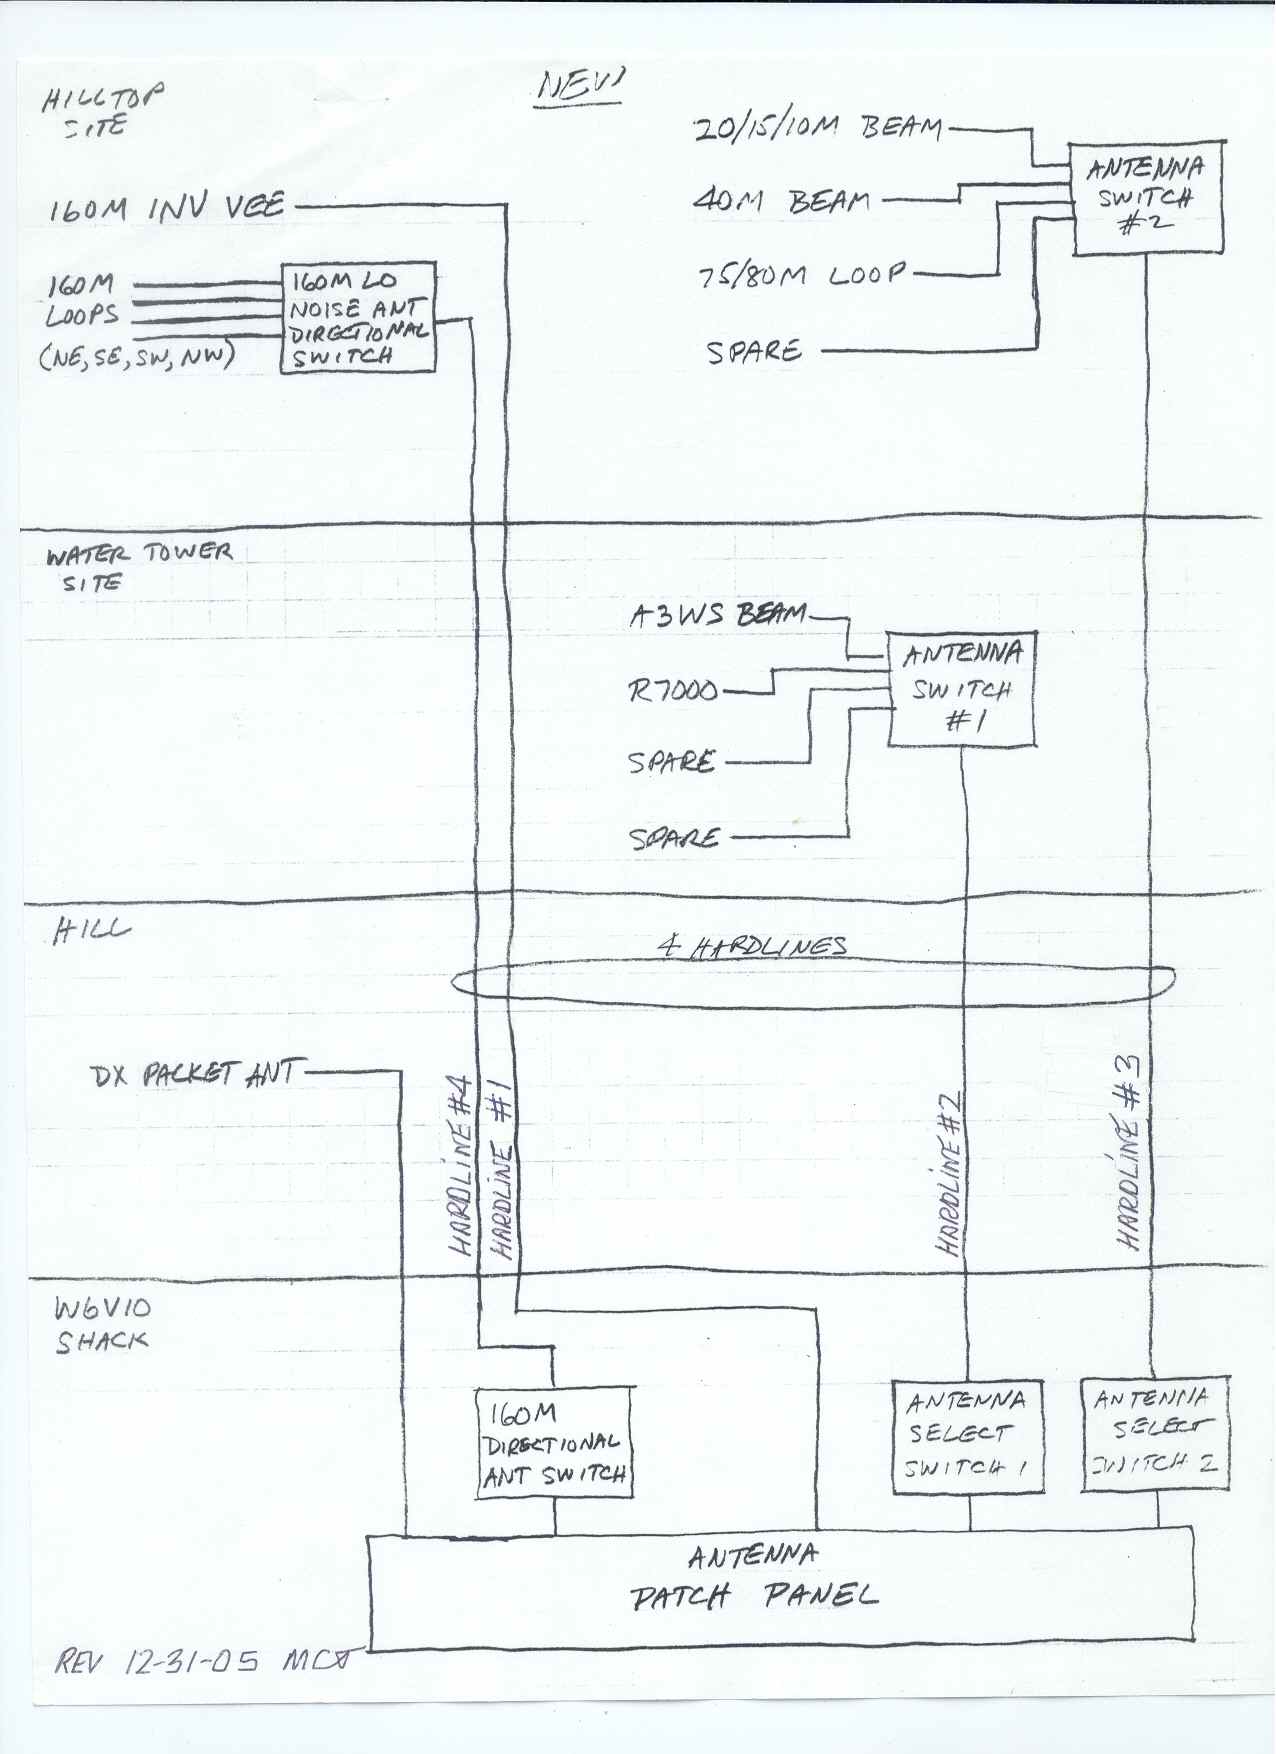 NEW
HILLTOP
SITE
160M INV VEE
160M
LOOPS
(NE, SE, SW, NW)
160M LO
NOISE ANT
DIRECTIONAL
SWITCH
20/15/10M BEAM
40M BEAM
75/80M LOOP
SPARE
ANTENNA
SWITCH
#2
WATER TOWER
SITE
A3WS BEAM
R7000
SPARE
SPARE
ANTENNA
SWITCH
#1
HILL
4 HARDLINES
DX PACKET ANT
HARDLINE #4
HARDLINE #1
HARDLINE #2
HARDLINE #3
W6VIO
SHACK
160M
DIRECTIONAL
ANT SWITCH
ANTENNA
SELECT
SWITCH 1
ANTENNA
SELECT
SWITCH 2
ANTENNA
PATCH PANEL
REV 12-31-05